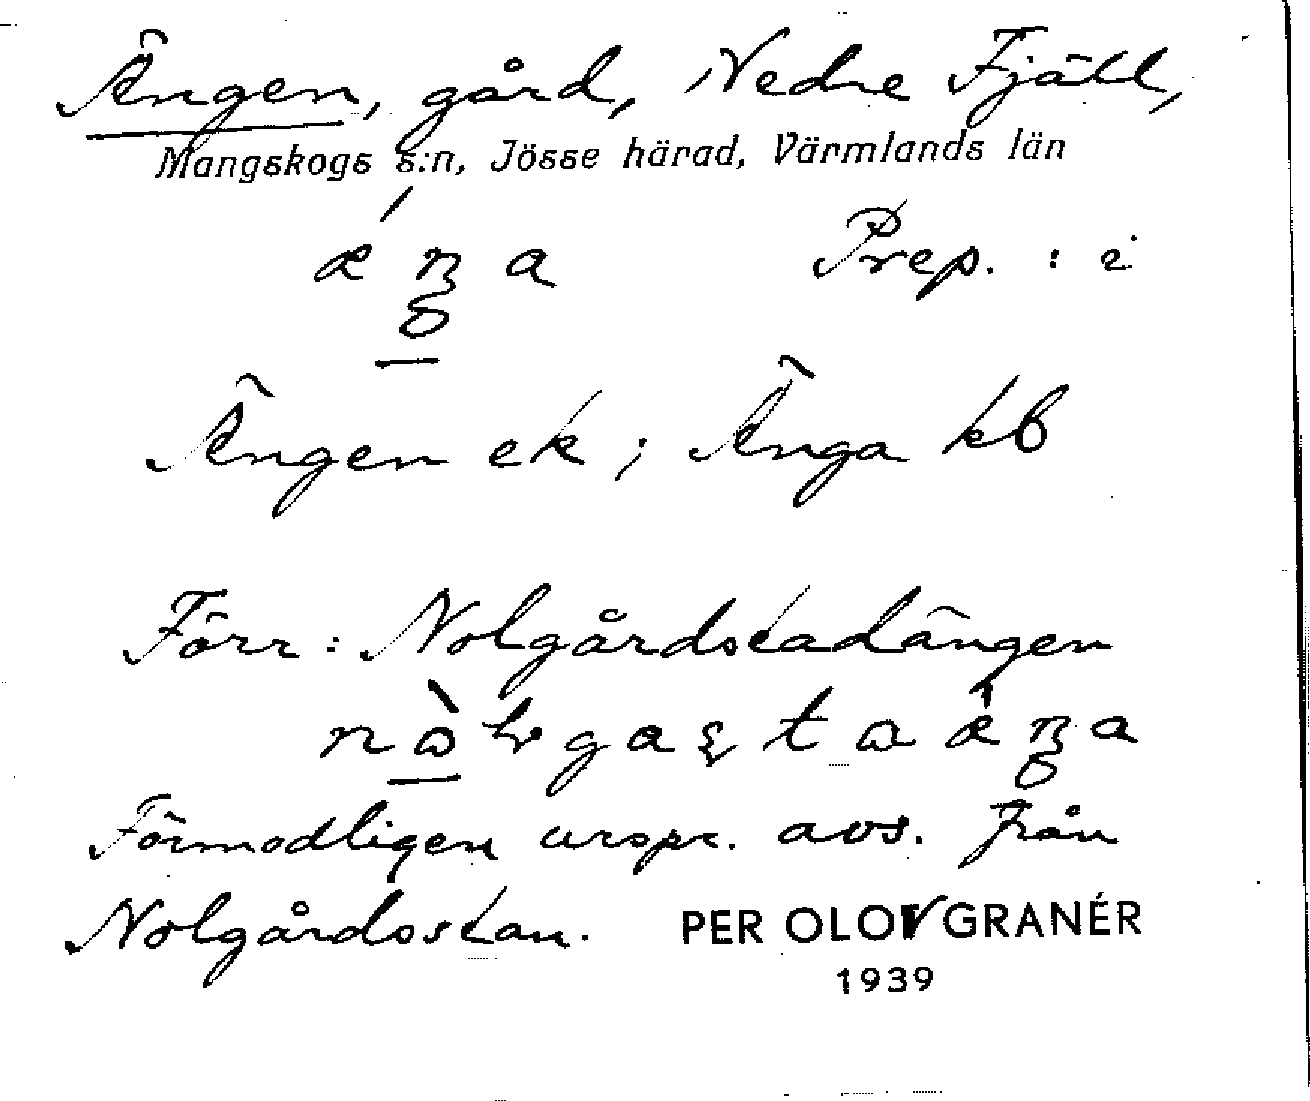 Ängen, gård, Nedre Fjäll,
Mangskogs s:n, Jösse härad, Värmlands län
Prep. : i
Ängen ek ; Änga kb
Förr : Nolgårdstadängen
Förmodligen urspr. avs. från
Nolgårdsstan. PER OLOV GRANÉR
1939